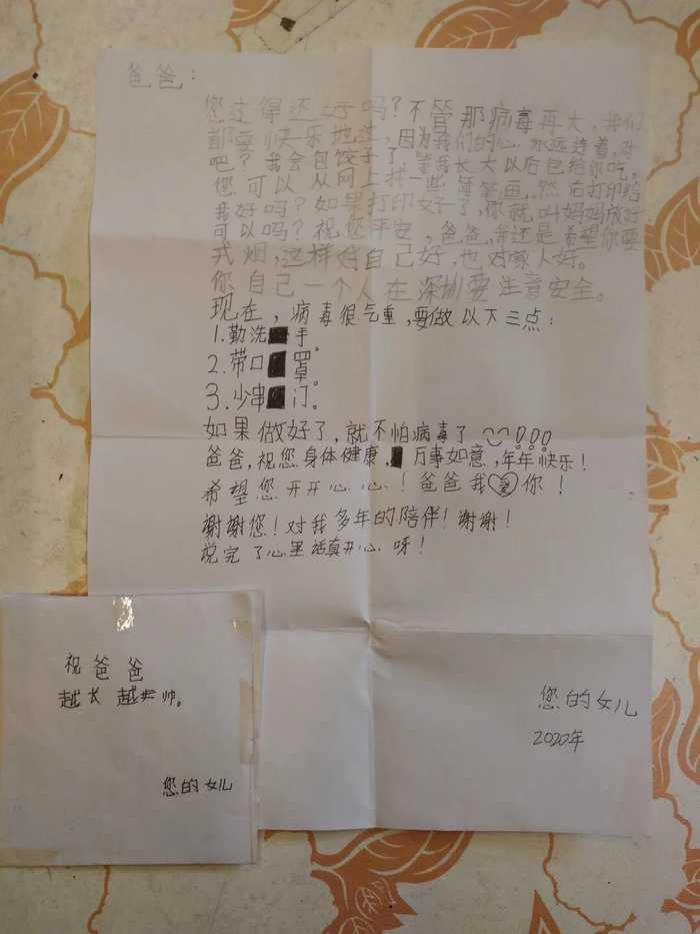 爸爸：
您过得还好吗？不管那病毒再大，我们
都要快乐地过，因为我们的心，永远连着，对
吧？我会包饺子了，等我长大以后包给你吃。
您可以从网上找一些简笔画，然后打印给
我好吗？如果打印好了，你就叫妈妈
可以吗？祝您平安，爸爸，我还是希望你要
戒烟，这样对自己好，也对家人好。
你自己一个人在深圳要注意安全。
现在，病毒很气重，要做以下三点：
1.勤洗手。
2.带口罩。
3.少串门。
如果做好了，就不怕病毒了!!!
爸爸，祝您身体健康，万事如意，年年快乐！
希望您开开心心！爸爸我你！
谢谢您！对我多年的陪伴！谢谢！
说完了心里话真开心呀！
您的女儿
2020年
祝爸爸
越长越帅。
您的女儿